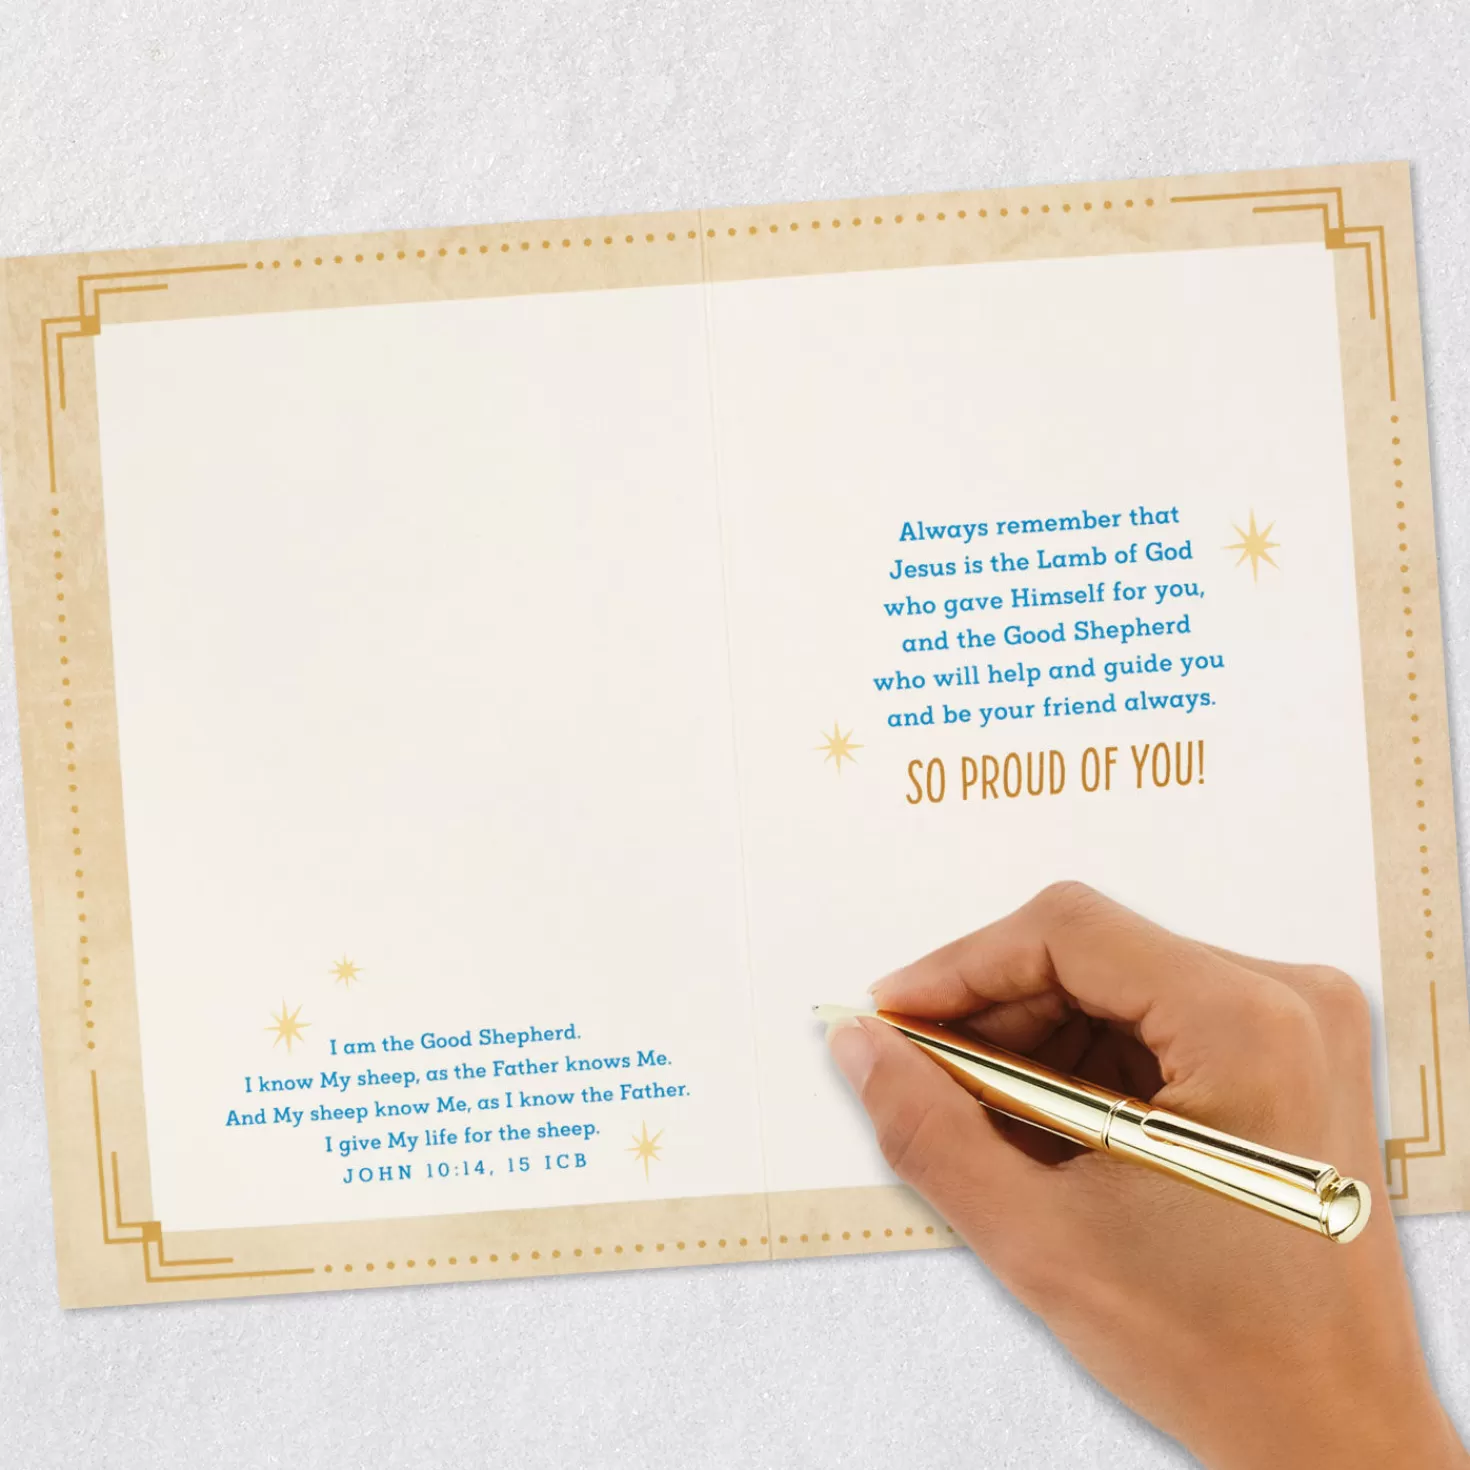 I am the Good Shepherd.
I know My sheep, as the Father knows Me.
And My sheep know Me, as I know the Father.
I give My life for the sheep.
JOHN 10:14, 15 ICB
Always remember that
Jesus is the Lamb of God
who gave Himself for you,
and the Good Shepherd
who will help and guide you
and be your friend always.
SO PROUD OF YOU!